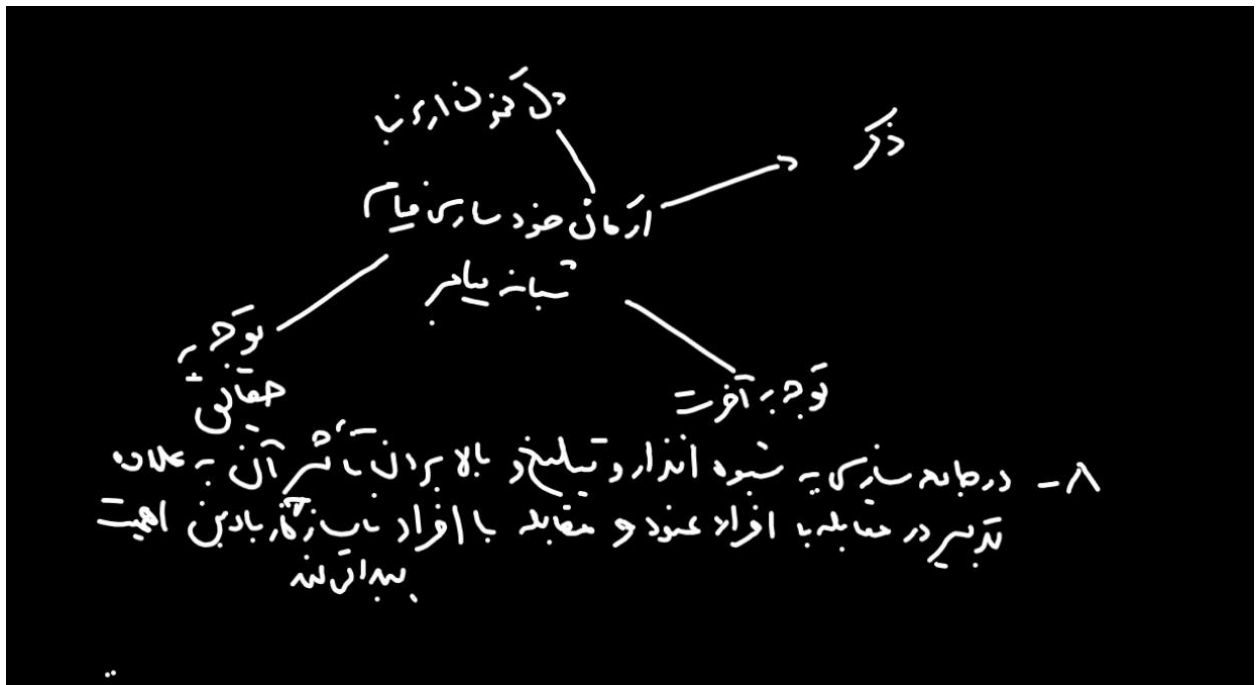 دل کندن از دنیا
ذکر
ارکان خودسازی قیام
شبانه پیامبر
توجه به
حقایق
توجه به آخرت
۸- در جامعه سازی به شیوه انذار و تبلیغ و بالا بردن تأثیر آن به علاوه
تدبیر در مقابله با افراد عنود و مقابله با افراد ناسازگار با دین اهمیت
پیدا می کند